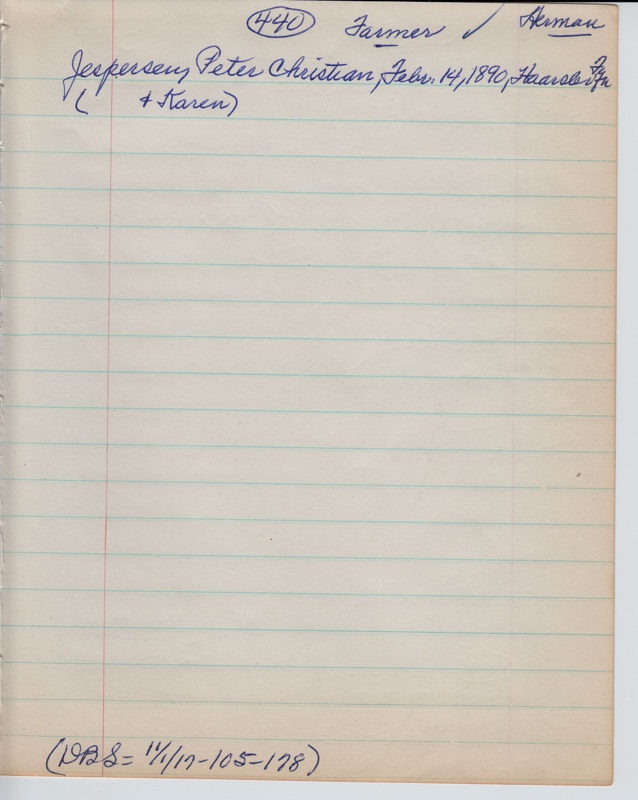 440 Farmer ✓ Herman
Jespersen, Peter Christian, Febr. 14, 1890,
( + Karen)
(DBS= 11/1/17-105-178)